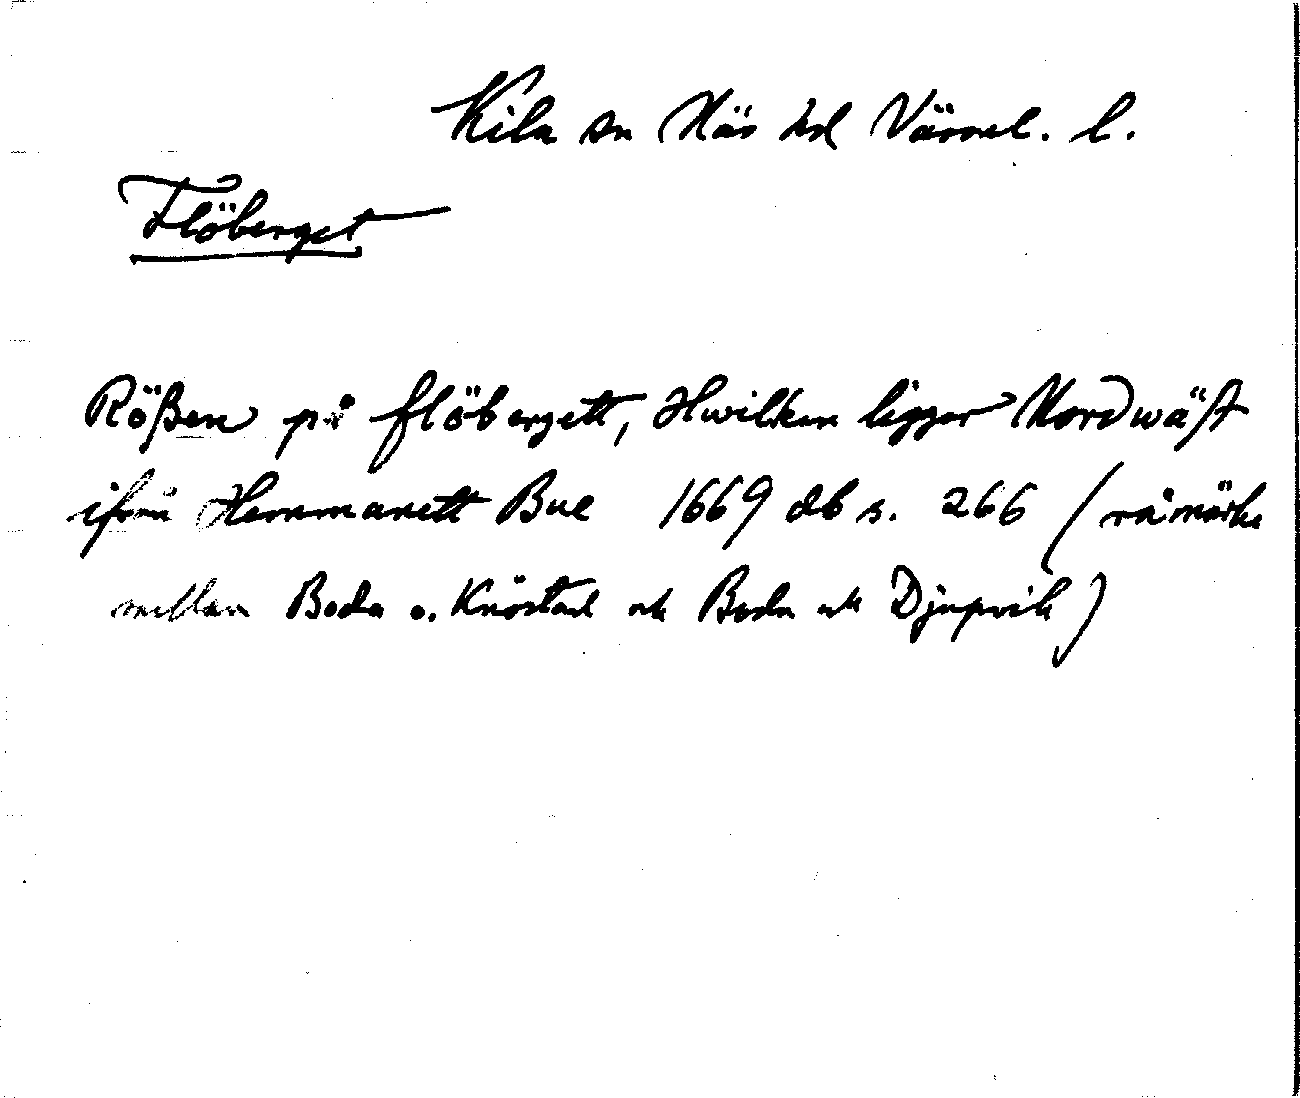 Kila sn Näs hd Värml. l.
Flöberget
Rößen på flöbergett, Hwilken ligger Nordwäst
ifrån Hemmanett Bue 1669 db s. 266 (råmärke
mellan Boda o. Knöstad ock Boda ock Djupvik)